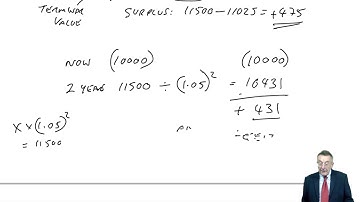 TERMINAL VALUE
SURPLUS: 11500 - 11025 = +475
NOW (10000) (10000)
2 YEARS 11500 ÷ (1.05)² = 10431
+ 431
X x (1.05)²
= 11500